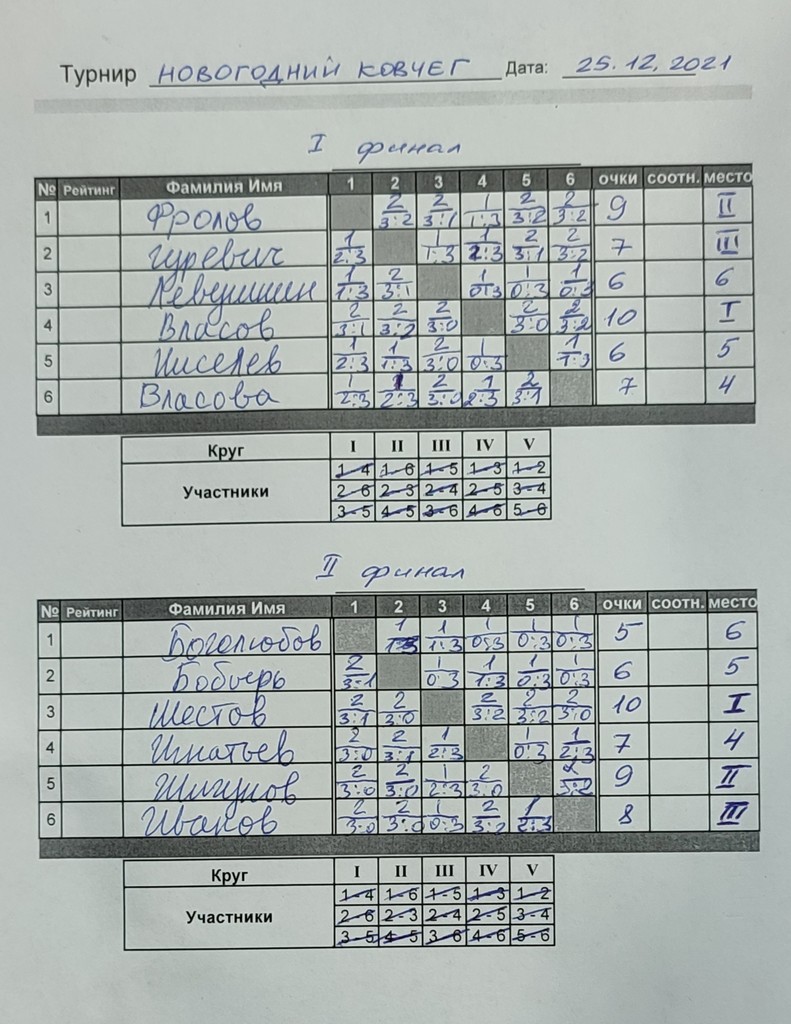 Турнир НОВОГОДНИЙ КОВЧЕГ Дата: 25.12.2021
I финал
№ Рейтинг Фамилия Имя 1 2 3 4 5 6 очки соотн. место
1 Фролов 2 3:2 2 3:1 1 1:3 2 3:2 2 3:2 9 II
2 Гуревич 1 2:3 1 1:3 1 2:3 2 3:1 2 3:2 7 III
3 Левушкин 1 1:3 2 3:1 1 0:3 1 0:3 1 0:3 6 6
4 Власов 2 3:1 2 3:2 2 3:0 2 3:0 2 3:2 10 I
5 Киселев 1 2:3 1 1:3 2 3:0 1 0:3 1 1:3 6 5
6 Власова 1 2:3 1 2:3 2 3:0 1 2:3 2 3:1 7 4
Круг I II III IV V
1-4 1-6 1-5 1-3 1-2
Участники 2-6 2-3 2-4 2-5 3-4
3-5 4-5 3-6 4-6 5-6
II финал
№ Рейтинг Фамилия Имя 1 2 3 4 5 6 очки соотн. место
1 Боголюбов 1 1:3 1 1:3 1 0:3 1 0:3 1 0:3 5 6
2 Бобырь 2 3:1 1 0:3 1 1:3 1 0:3 1 0:3 6 5
3 Шестов 2 3:1 2 3:0 2 3:2 2 3:2 2 3:0 10 I
4 Игнатьев 2 3:0 2 3:1 1 2:3 1 0:3 1 2:3 7 4
5 Жигунов 2 3:0 2 3:0 1 2:3 2 3:0 2 3:2 9 II
6 Иванов 2 3:0 2 3:0 1 0:3 2 3:2 1 2:3 8 III
Круг I II III IV V
1-4 1-6 1-5 1-3 1-2
Участники 2-6 2-3 2-4 2-5 3-4
3-5 4-5 3-6 4-6 5-6